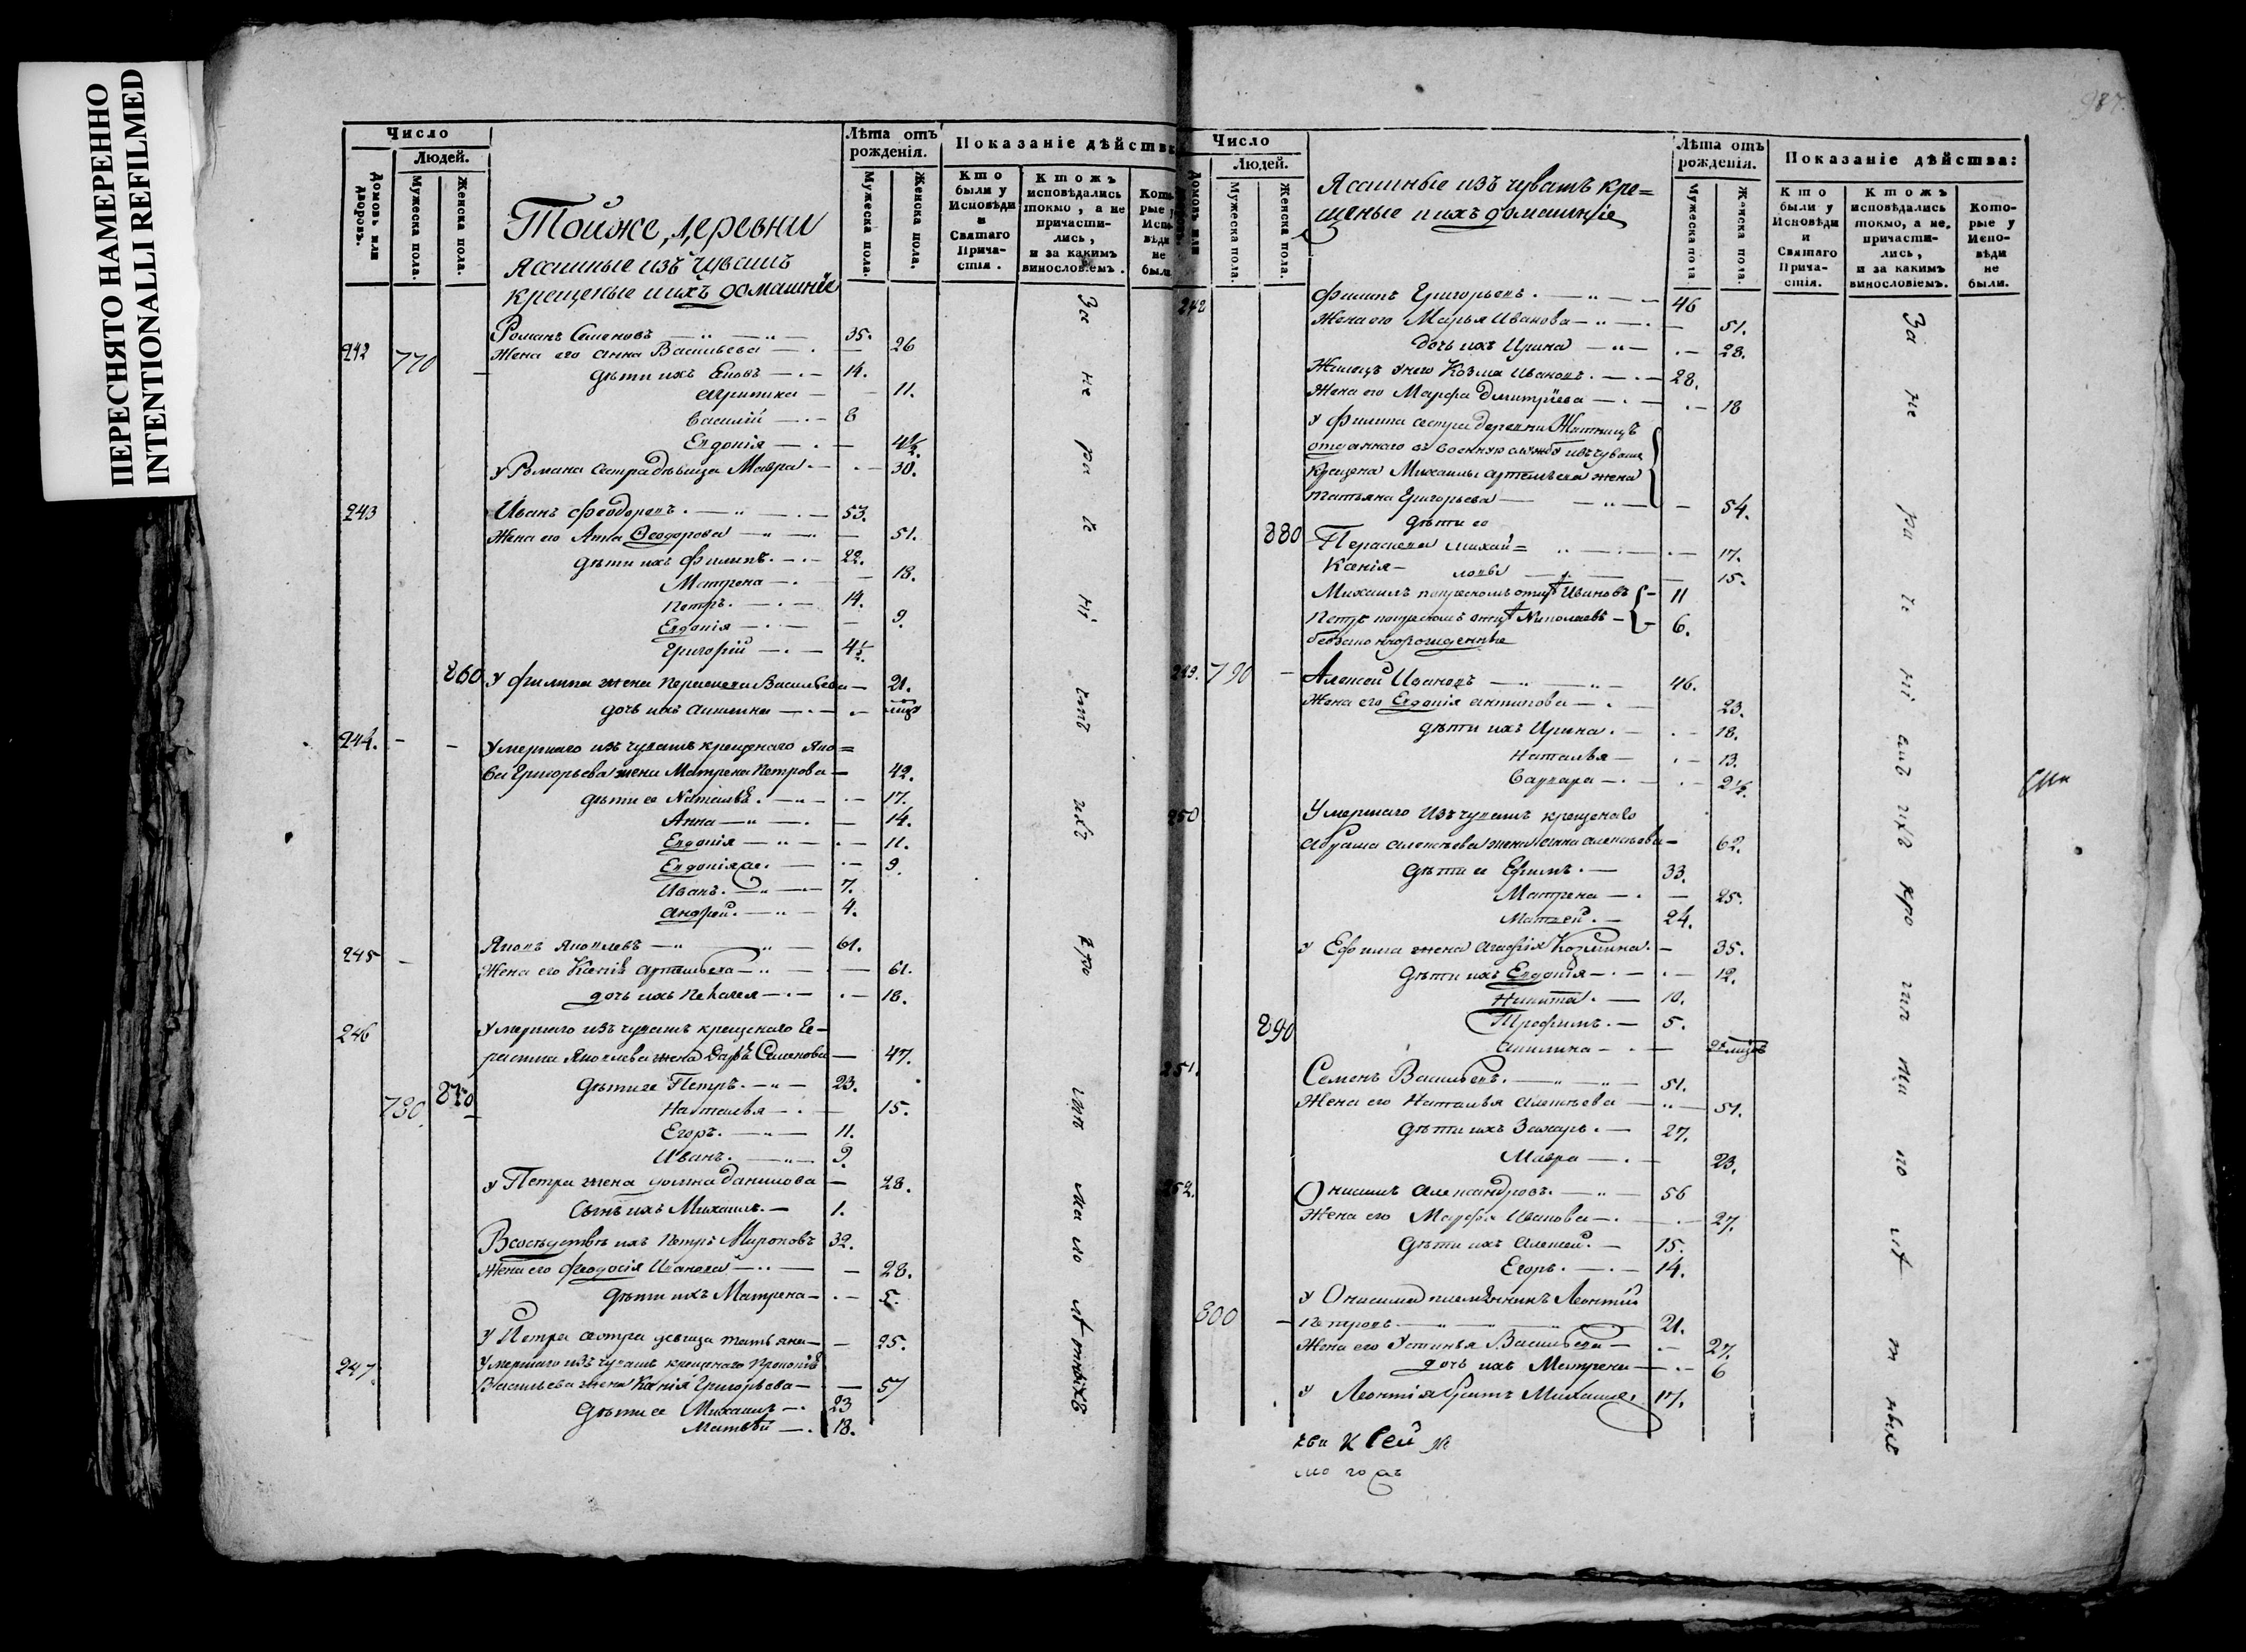 ПЕРЕСНЯТО НАМЕРЕННО
INTENTIONALLI REFILMED
Число
Людей.
Домовъ или дворовъ.
Мужеска пола.
Женска пола.
Тойже деревни
Ясашные изъ чувашъ
крещеные и ихъ домашніе
Лѣта отъ рожденія.
Мужеска пола.
Женска пола.
Показаніе дѣйства
Кто были у Исповѣди и Святаго Причастія.
Ктожъ исповѣдались токмо, а не причастились, и за какимъ винословіемъ.
Которые у Исповѣди не были
Романъ Семеновъ 35.
242 770 Жена его Анна Васильева 26
дѣти ихъ 14.
11.
Василий 8
Евдокія 4½.
У Романа сестра дѣвица Мавра 30.
243 Иванъ Феодоровъ 53.
Жена его Анна Феодорова 51.
дѣти ихъ Филипъ 22.
Матрена 18.
Петръ 14.
Евдокія 9.
Григорій 4½.
860 У Филипа жена Параскева Васильева 21.
дочь ихъ Акилина
244. Умершаго изъ чувашъ крещенаго Яко=
ва Григорьева жена Матрена Петрова 42.
дѣти ее Наталья 17.
Анна 14.
Евдокія 11.
Евдокія 9.
Иванъ 7.
Андрей 4.
245 Яковъ Яковлевъ 61.
Жена его Ксенія Артемьева 61.
дочь ихъ Пелагея 18.
246 Умершаго изъ чувашъ крещенаго Ге-
расима Яковлева жена Дарья Семенова 47.
дѣти ее Петръ 23.
780 870 Наталья 15.
Егоръ 11.
Иванъ 9.
У Петра жена Данилова 28.
Сынъ ихъ Михаилъ 1.
Всосѣдствѣ ихъ Петръ Мироновъ 32.
Жена его Феодосія Иванова 28.
дѣти ихъ Матрена 5.
У Петра сестра дѣвица Татьяна 25.
247. Умершаго изъ чувашъ крещенаго Прокопія
Васильева жена Ксенія Григорьева 57
дѣти ее Михаилъ 23
Матвѣй 18.
За не ра че ні ихъ
987.
Число
Людей.
Домовъ или
Мужеска пола.
Женска пола.
Ясашные изъ чувашъ кре=
щеные и ихъ домашніе
Лѣта отъ рожденія.
Мужеска пола
Женска пола.
Показаніе дѣйства:
Кто были у Исповѣди и Святаго Причастія.
Ктожъ исповѣдались токмо, а не причастились, и за какимъ винословіемъ.
Которые у Исповѣди не были.
248 Филипъ Григорьевъ 46
Жена его Марья Иванова 51.
дочь ихъ Ирина 28.
Жилецъ у него Козма Ивановъ 28.
Жена его Марфа Дмитріева 18
У Филипа сестра деревни Житницъ
отданнаго въ военную службу изъ чувашъ
крещена Михаилы Артемьева жена
Татьяна Григорьева 54.
дѣти ее
880 Параскева Михай= 17.
Ксенія ловы 15.
Михаилъ по крескомъ отцѣ Ивановъ 11
Петръ по крескомъ отцѣ Николаевъ 6.
безъзаконнорожденные
249. 790 Алексей Ивановъ 46.
Жена его Евдокія Антипова 23.
дѣти ихъ Ирина 18.
Наталья 13.
Варвара 2½.
250 Умершаго изъ чувашъ крещенаго
Абрама Алексѣева жена Анна Алексѣева 62.
дѣти ее Ефимъ 33.
Матрена 25.
Матвей 24.
У Ефима жена Агафія Козмина 35.
дѣти ихъ Евдокія 12.
Никита 10.
890 Трофимъ 5.
Акилина
251. Семенъ Васильевъ 51.
Жена его Наталья Алексѣева 51.
дѣти ихъ Захаръ 27.
Мавра 23.
252. Онисимъ Александровъ 56
Жена его Марфа Иванова 27.
дѣти ихъ Алексей 15.
Егоръ 14.
У Онисима племянникъ Леонтій
800 Петровъ 21.
Жена его Устинья Васильева 27.
дочь ихъ Матрена 6
У Леонтія братъ Михаилъ 17.
За не ра че ні ихъ